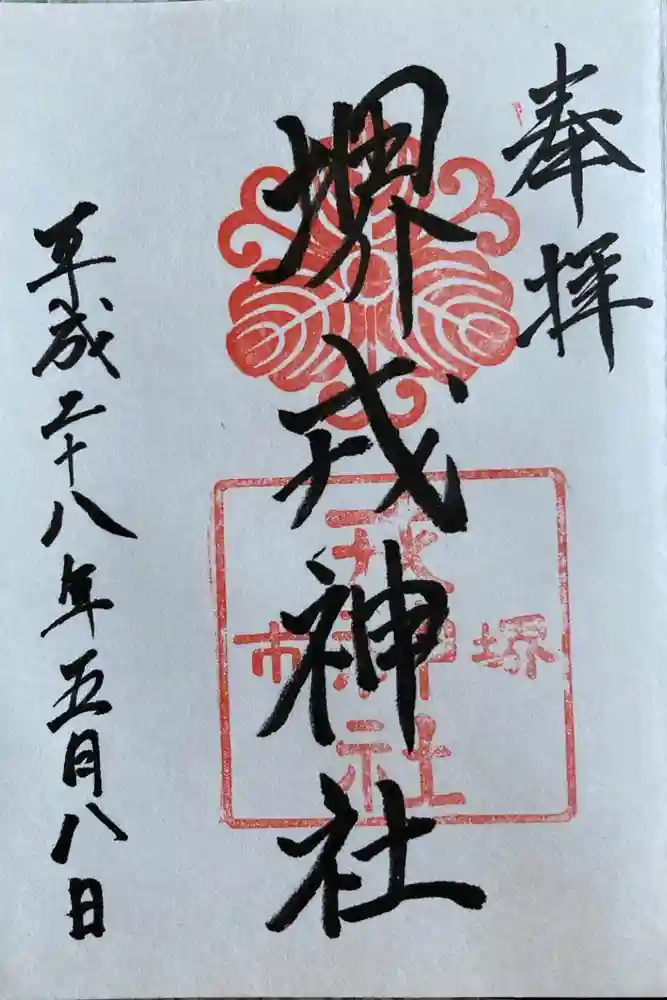 奉拝
堺戎神社
堺
戎神社
市
平成二十八年五月八日